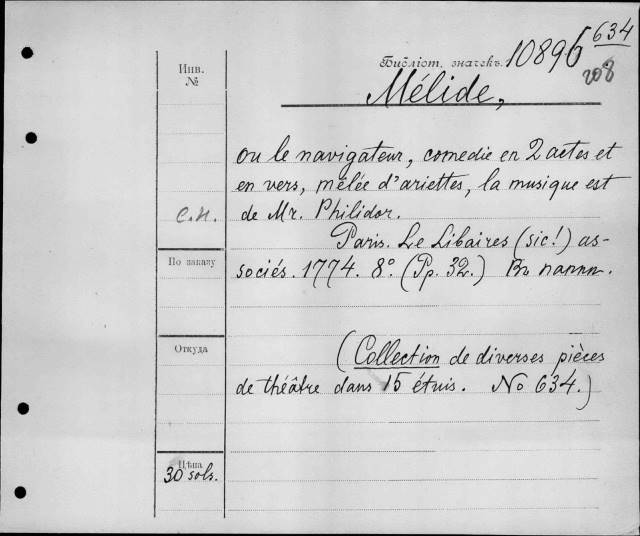 634
Инв.
№
Библіот. значекъ. 10896
208
Mélide,
ou le navigateur, comedie en 2 actes et
en vers, mêlée d'ariettes, la musique est
С.П.
de Mr. Philidor.
Paris. Le Libaires (sic!) as-
По заказу
sociés. 1774. 8º. (Pp. 32.) Въ папкѣ.
Откуда
(Collection de diverses pièces
de théâtre dans 15 étuis. No 634.)
Цѣна
30 sols.